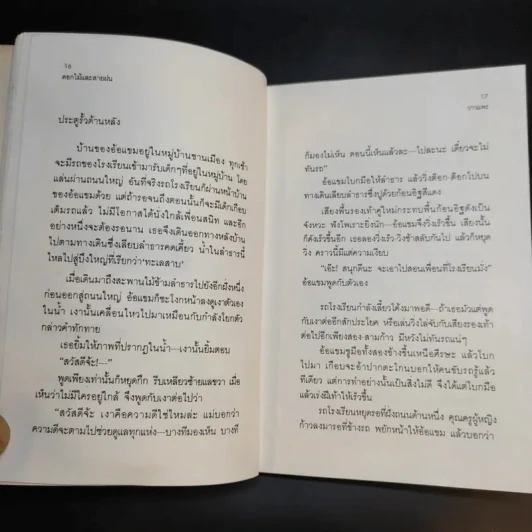 16
ดอกไม้และสายฝน
ประตูรั้วด้านหลัง
บ้านของอ้อแขมอยู่ในหมู่บ้านชานเมือง ทุกเช้า
จะมีรถของโรงเรียนเข้ามารับเด็กๆที่อยู่ในหมู่บ้าน โดย
แล่นผ่านถนนใหญ่ อันที่จริงรถโรงเรียนก็ผ่านหน้าบ้าน
ของอ้อแขมด้วย แต่ถ้ารอจนถึงตอนนั้นก็จะมีเด็กเกือบ
เต็มรถแล้ว ไม่มีโอกาสได้นั่งใกล้เพื่อนสนิท และอีก
อย่างหนึ่งจะต้องรอนาน เธอจึงเดินออกทางหลังบ้าน
ไปตามทางเดินซึ่งเลียบลำธารคดเคี้ยว น้ำในลำธารนี้
ไหลไปสู่บึงใหญ่ที่เรียกว่า'ทะเลสาบ'
เมื่อเดินมาถึงสะพานไม้ข้ามลำธารไปยังอีกฝั่งหนึ่ง
ก่อนออกสู่ถนนใหญ่ อ้อแขมก็ชะโงกหน้าลงดูเงาตัวเอง
ในน้ำ เงานั้นเคลื่อนไหวไปมาเหมือนกับกำลังโยกตัว
กล่าวคำทักทาย
เธอยิ้มให้ภาพที่ปรากฏในน้ำ---เงานั้นยิ้มตอบ
"สวัสดีจ้ะ!---"
พูดเพียงเท่านั้นก็หยุดกึก รีบเหลียวซ้ายแลขวา เมื่อ
เห็นว่าไม่มีใครอยู่ใกล้ จึงพูดกับเงาต่อไปว่า
"สวัสดีจ้ะ เงาคือความดีใช่ไหมล่ะ แม่บอกว่า
ความดีจะตามไปช่วยดูแลทุกแห่ง---บางทีมองเห็น บางที
17
ก็มองไม่เห็น ตอนนี้เห็นแล้วละ---ไปละนะ เดี๋ยวจะไม่
ทันรถ"
อ้อแขมโบกมือให้ลำธาร แล้ววิ่งต๊อก-ต๊อกไปบน
ทางเดินเลียบลำธารซึ่งปูด้วยก้อนอิฐสีแดง
เสียงพื้นรองเท้าคู่ใหม่กระทบพื้นก้อนอิฐดังเป็น
จังหวะ ฟังไพเราะยิ่งนัก---อ้อแขมจึงวิ่งเร็วขึ้น เสียงนั้น
ก็ดังเร็วขึ้นอีก เธอลองวิ่งเร็ว-วิ่งช้าสลับกันไป แล้วก็หยุด
วิ่ง คราวนี้มีแต่ความเงียบ
"เอ๊ะ! สนุกดีนะ จะเอาไปสอนเพื่อนที่โรงเรียนมั่ง"
อ้อแขมพูดกับตัวเอง
รถโรงเรียนกำลังเลี้ยวโค้งมาพอดี---ถ้าเธอมัวแต่พูด
กับเงาต่ออีกสักประโยค หรือเล่นวิ่งไล่จับกับเสียงรองเท้า
ต่อไปอีกเพียงสอง-สามก้าว มีหวังไม่ทันรถแน่ๆ
อ้อแขมชูมือทั้งสองข้างขึ้นเหนือศีรษะ แล้วโบก
ไปมา เกือบจะอ้าปากตะโกนบอกให้คนขับรถรู้แล้ว
ทีเดียว แต่การทำอย่างนั้นเป็นสิ่งไม่ดี จึงได้แต่โบกมือ
แล้วเร่งฝีเท้าให้เร็วขึ้น
รถโรงเรียนหยุดรอที่ฝั่งถนนด้านหนึ่ง คุณครูผู้หญิง
ก้าวลงมารอที่ข้างรถ พยักหน้าให้อ้อแขม แล้วบอกว่า